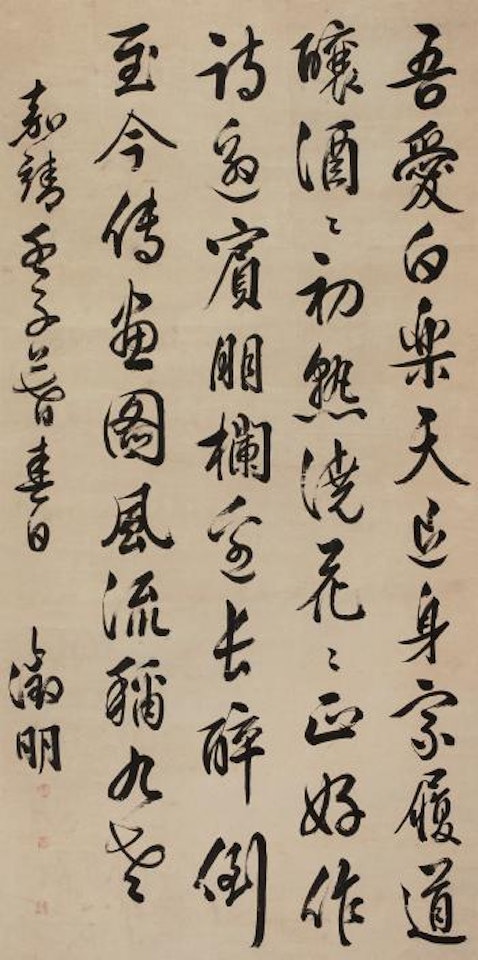 吾愛白樂天退身家履道
釀酒〻初熟澆花〻正好作
詩邀賓朋欄邊長醉倒
至今傳畫圖風流稱九老
嘉靖壬子暮春日 徵明